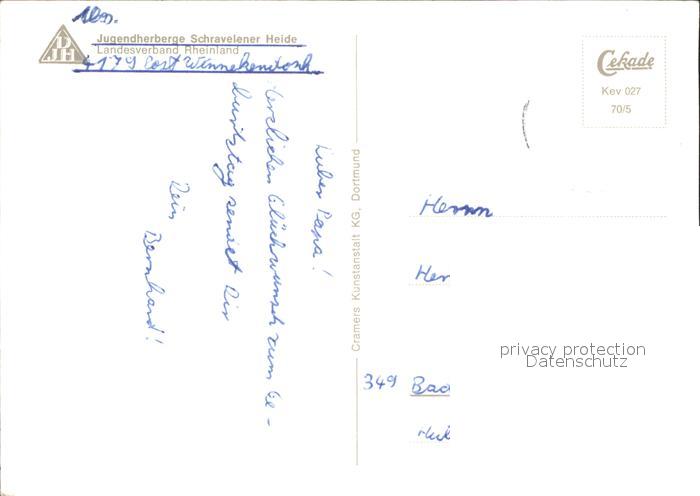 Abs.
DJH
Jugendherberge Schravelener Heide
Landesverband Rheinland
4179 Post Winnekendonk
Lieber Papa!
Herzlichen Glückwunsch zum Ge-
burtstag sendet Dir
Dein
Bernhard!
Cramers Kunstanstalt KG, Dortmund
Cekade
Kev 027
70/5
Herrn
Her
privacy protection
Datenschutz
349 Bad